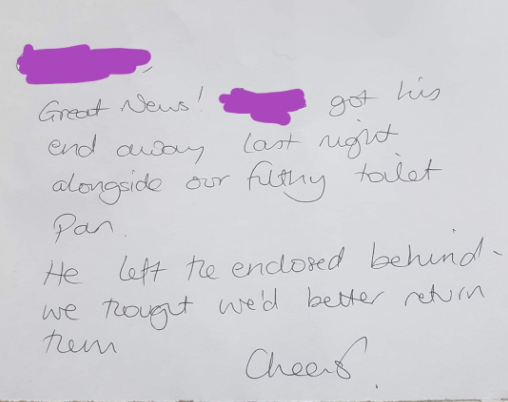 Great News! got his
end away last night
alongside our filthy toilet
Pan.
He left the enclosed behind -
we thought we'd better return
them
Cheers.